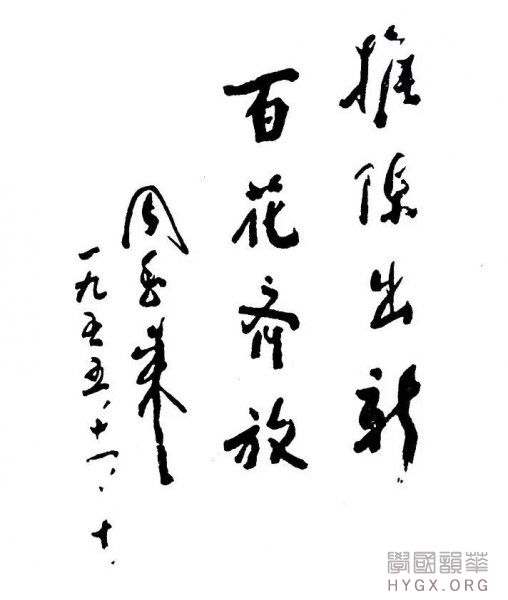 推陈出新
百花齐放
周恩来
一九五五、十一、十、
學國韻華
HYGX.ORG